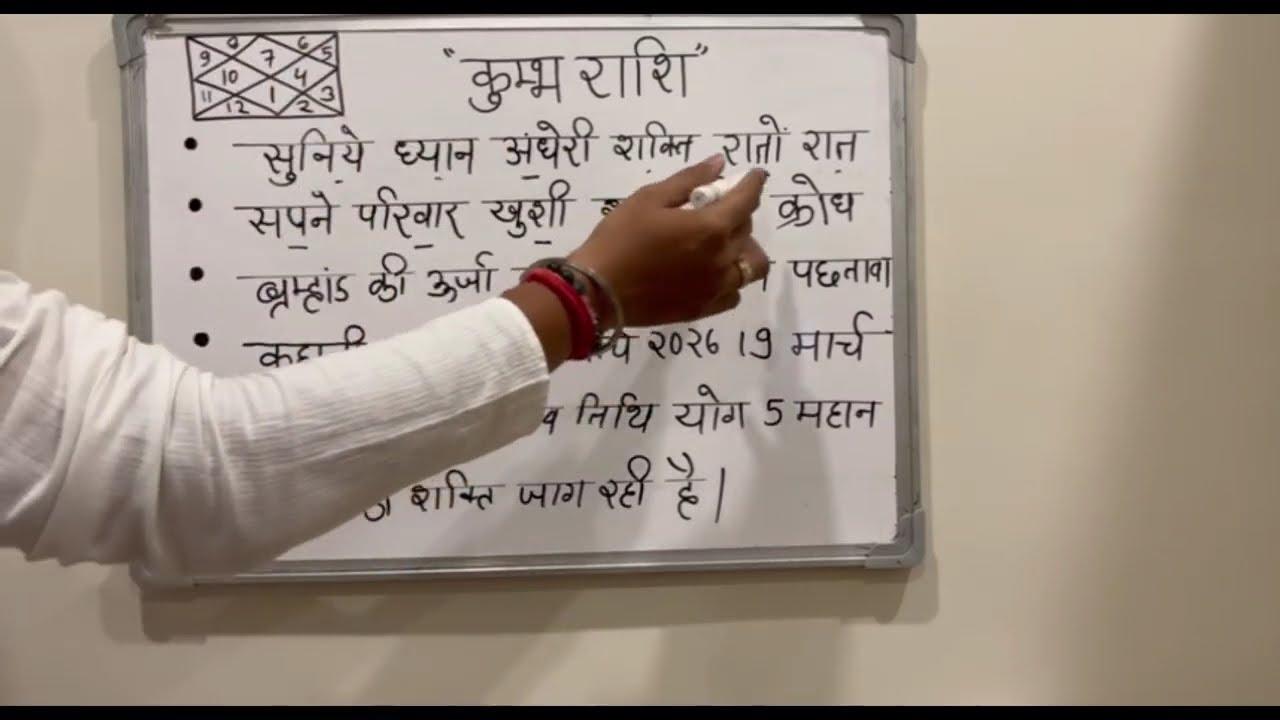 8 6
9 7 5
10 4
11 1 3
12 2
"कुम्भ राशि"
• सुनिये ध्यान अंधेरी शक्ति रातों रात
• सपने परिवार खुशी क्रोध
• ब्रम्हांड की ऊर्जा पछतावा
• २०२६ 19 मार्च
तिथि योग 5 महान
शक्ति जाग रही है।